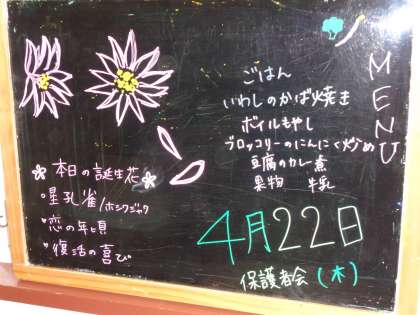 MENU
ごはん
いわしのかば焼き
ボイルもやし
ブロッコリーのにんにく炒め
豆腐のカレー煮
果物 牛乳
本日の誕生花
・星孔雀/ホシクジャク
・恋の年頃
・復活の喜び
4月22日
保護者会 (木)